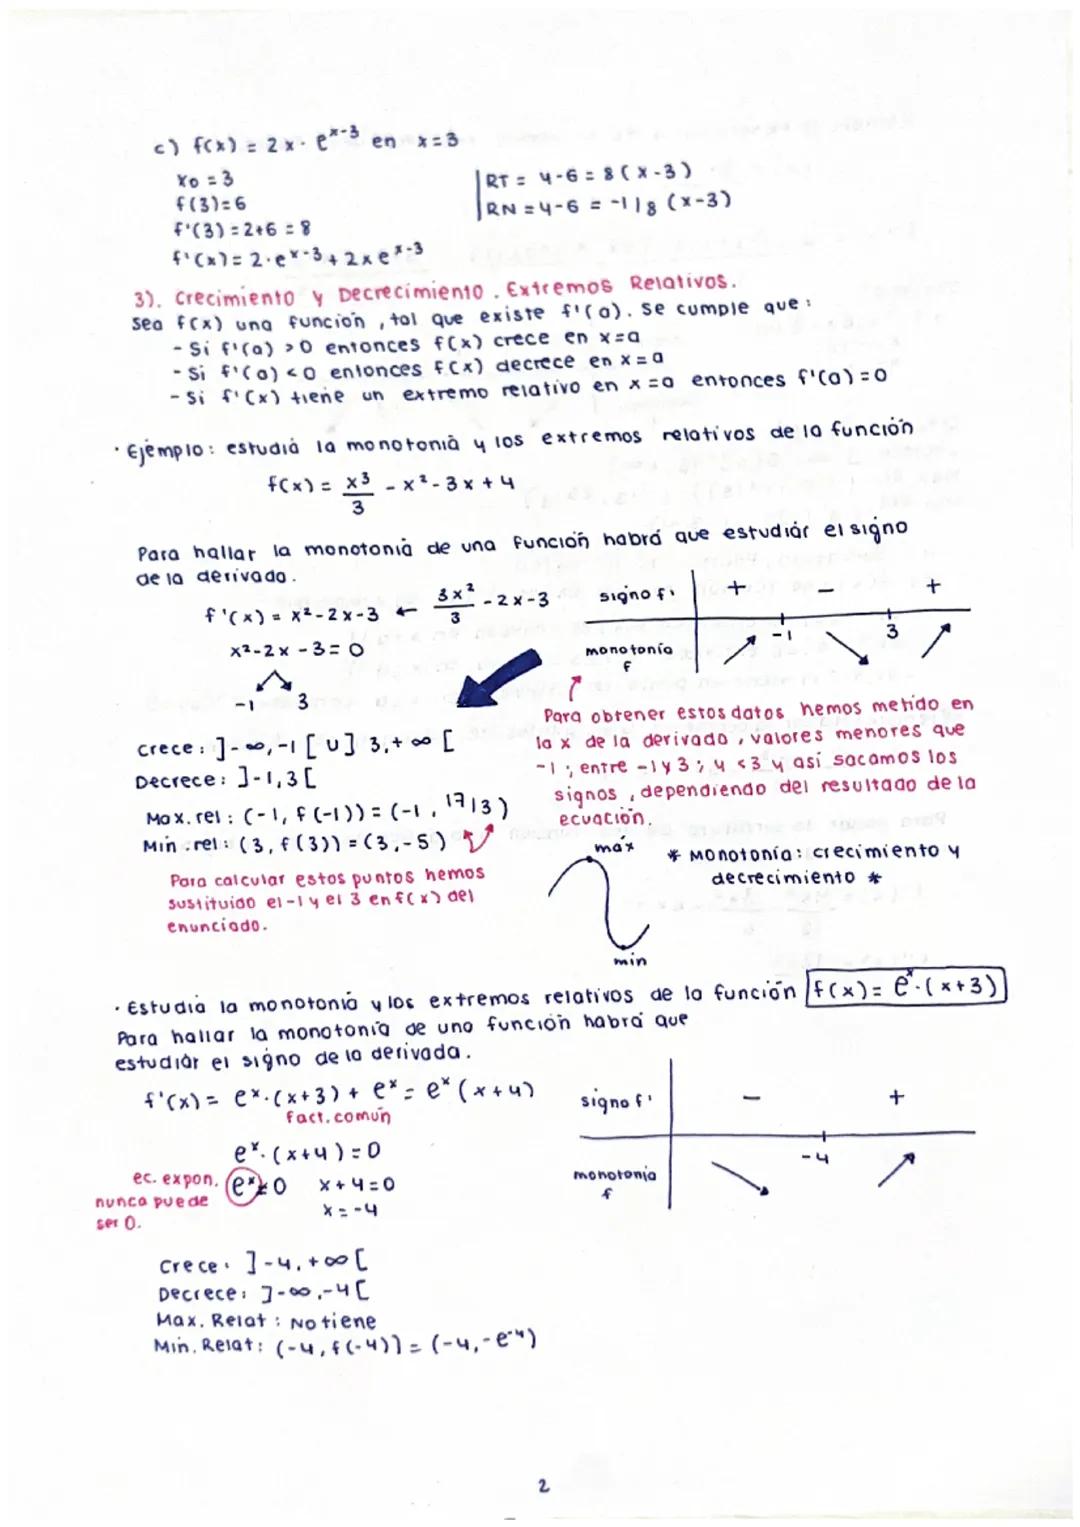 c) f(x) = 2x · e^x-3 en x=3
x0 = 3
f(3)=6
f'(3) = 2+6 = 8
f'(x) = 2·e^x-3 + 2x e^x-3
RT = y-6 = 8(x-3)
RN = y-6 = -1/8 (x-3)
3). Crecimiento y Decrecimiento. Extremos Relativos.
Sea f(x) una función, tal que existe f'(a). Se cumple que:
- Si f'(a) >0 entonces f(x) crece en x=a
- Si f'(a) <0 entonces f(x) decrece en x=a
- Si f'(x) tiene un extremo relativo en x=a entonces f'(a)=0
· Ejemplo: estudia la monotonía y los extremos relativos de la función
f(x) = x³/3 - x² - 3x + 4
Para hallar la monotonía de una función habrá que estudiar el signo
de la derivada.
f'(x) = x²-2x-3 ← 3x²/3 - 2x-3
x²-2x-3=0
-1 3
signo f' + - +
-1 3
monotonía
f
Crece: ]-∞,-1[ U ]3,+∞[
Decrece: ]-1,3[
Max. rel: (-1, f(-1)) = (-1, 17/3)
Min. rel: (3, f(3)) = (3,-5)
Para calcular estos puntos hemos
sustituido el -1 y el 3 en f(x) del
enunciado.
Para obtener estos datos hemos metido en
la x de la derivada, valores menores que
-1; entre -1 y 3; y <3 y así sacamos los
signos, dependiendo del resultado de la
ecuación.
máx
min
* Monotonía: crecimiento y
decrecimiento *
· Estudia la monotonía y los extremos relativos de la función f(x) = e^x·(x+3)
Para hallar la monotonía de una función habrá que
estudiar el signo de la derivada.
f'(x) = e^x·(x+3) + e^x = e^x (x+4)
fact. común
e^x·(x+4)=0
ec. expon.
nunca puede
ser 0.
e^x≠0 x+4=0
x=-4
signo f' - +
-4
monotonía
f
Crece: ]-4,+∞[
Decrece: ]-∞,-4[
Max. Relat: No tiene
Min. Relat: (-4, f(-4)) = (-4,-e^-4)
2